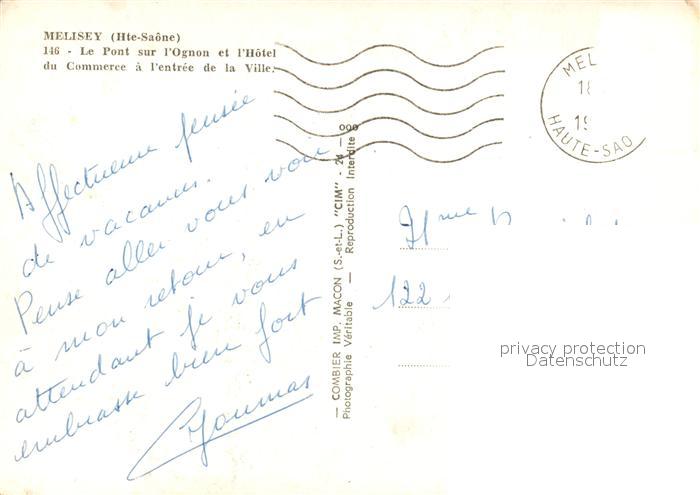 MELISEY (Hte-Saône)
146 - Le Pont sur l'Ognon et l'Hôtel
du Commerce à l'entrée de la Ville.
Affectueuse pensée
de vacances.
Pense aller vous voir
à mon retour, en
attendant je vous
embrasse bien fort
— COMBIER IMP. MACON (S.-et-L.) "CIM" -
Photographie Véritable — Reproduction Interdite
MEL
18
19
HAUTE-SAO
Mme
122
privacy protection
Datenschutz